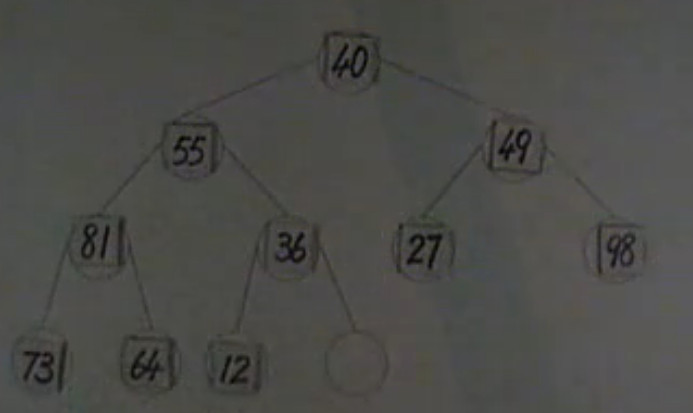 40
55 49
81 36 27 98
73 64 12